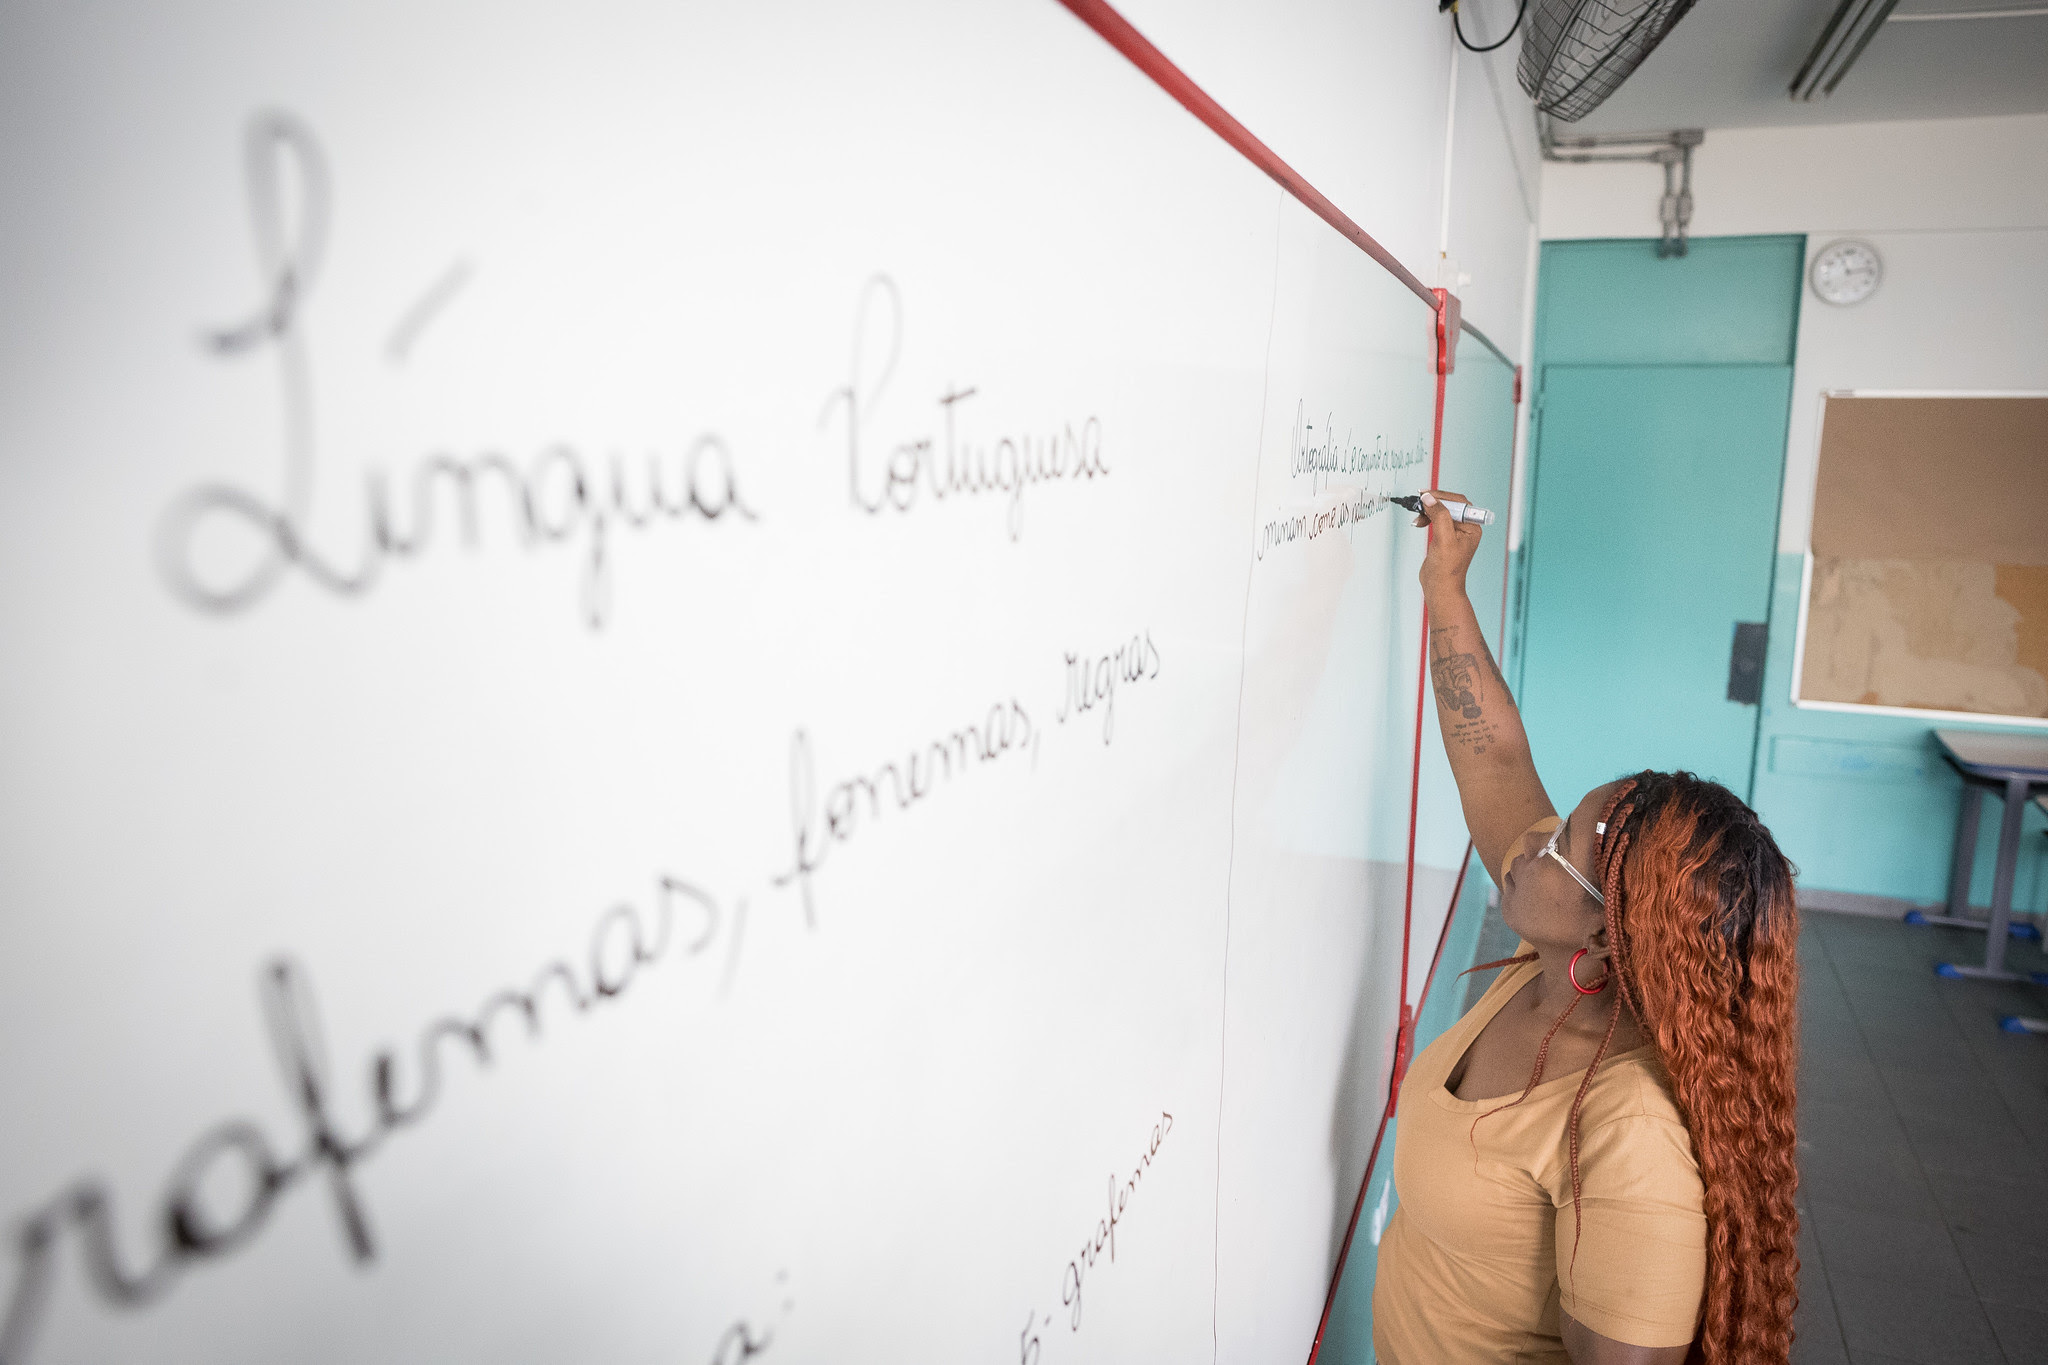 Língua Portuguesa
rafemas, fonemas, regras
a:
5- grafemas
Ortografia é o conjunto de regras que deter-
minam como as palavras